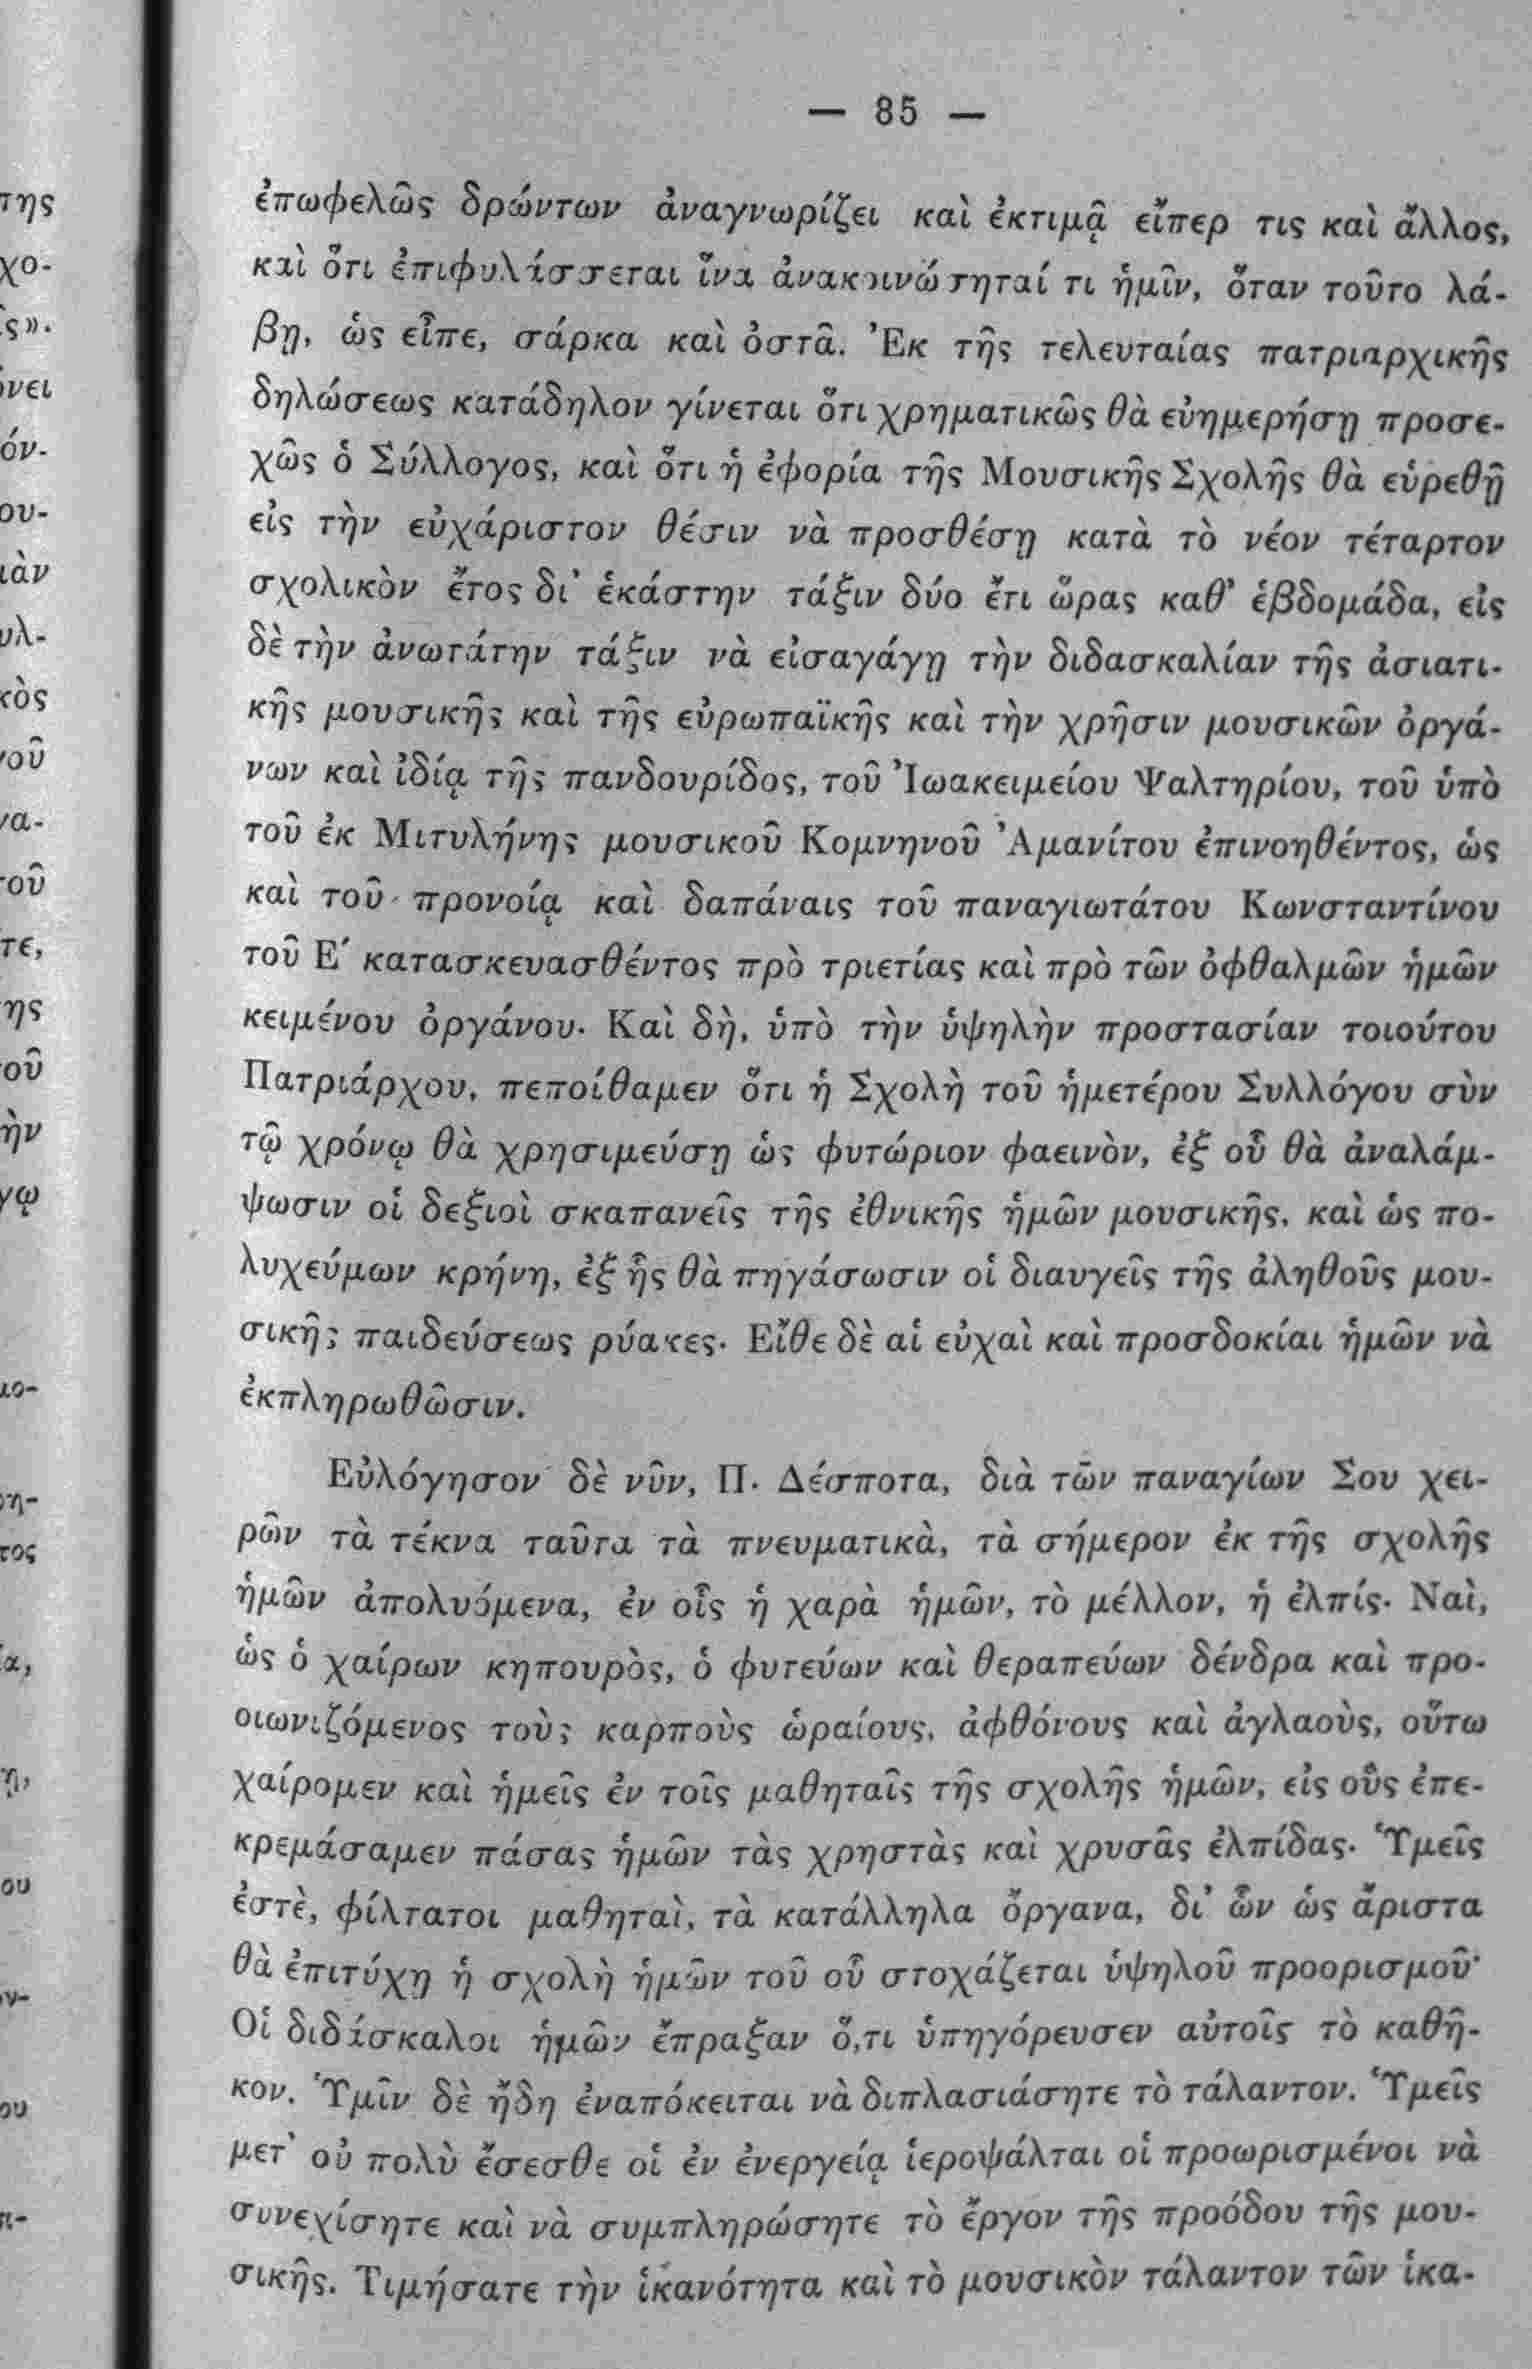 — 85 —
ἐπωφελῶς δρώντων ἀναγνωρίζει καὶ ἐκτιμᾷ εἴπερ τις καὶ ἄλλος,
καὶ ὅτι ἐπιφυλάσσεται ἵνα ἀνακοινώσηταί τι ἡμῖν, ὅταν τοῦτο λά-
βῃ, ὡς εἶπε, σάρκα καὶ ὀστᾶ. Ἐκ τῆς τελευταίας πατριαρχικῆς
δηλώσεως κατάδηλον γίνεται ὅτι χρηματικῶς θὰ εὐημερήσῃ προσε-
χῶς ὁ Σύλλογος, καὶ ὅτι ἡ ἐφορία τῆς Μουσικῆς Σχολῆς θὰ εὑρεθῇ
εἰς τὴν εὐχάριστον θέσιν νὰ προσθέσῃ κατὰ τὸ νέον τέταρτον
σχολικὸν ἔτος δι' ἑκάστην τάξιν δύο ἔτι ὥρας καθ' ἑβδομάδα, εἰς
δὲ τὴν ἀνωτάτην τάξιν νὰ εἰσαγάγῃ τὴν διδασκαλίαν τῆς ἀσιατι-
κῆς μουσικῆς καὶ τῆς εὐρωπαϊκῆς καὶ τὴν χρῆσιν μουσικῶν ὀργά-
νων καὶ ἰδίᾳ τῆς πανδουρίδος, τοῦ Ἰωακειμείου Ψαλτηρίου, τοῦ ὑπὸ
τοῦ ἐκ Μιτυλήνης μουσικοῦ Κομνηνοῦ Ἀμανίτου ἐπινοηθέντος, ὡς
καὶ τοῦ προνοίᾳ καὶ δαπάναις τοῦ παναγιωτάτου Κωνσταντίνου
τοῦ Ε΄ κατασκευασθέντος πρὸ τριετίας καὶ πρὸ τῶν ὀφθαλμῶν ἡμῶν
κειμένου ὀργάνου. Καὶ δὴ, ὑπὸ τὴν ὑψηλὴν προστασίαν τοιούτου
Πατριάρχου, πεποίθαμεν ὅτι ἡ Σχολὴ τοῦ ἡμετέρου Συλλόγου σὺν
τῷ χρόνῳ θὰ χρησιμεύσῃ ὡς φυτώριον φαεινὸν, ἐξ οὗ θὰ ἀναλάμ-
ψωσιν οἱ δεξιοὶ σκαπανεῖς τῆς ἐθνικῆς ἡμῶν μουσικῆς, καὶ ὡς πο-
λυχεύμων κρήνη, ἐξ ἧς θὰ πηγάσωσιν οἱ διαυγεῖς τῆς ἀληθοῦς μου-
σικῆς παιδεύσεως ρύακες. Εἴθε δὲ αἱ εὐχαὶ καὶ προσδοκίαι ἡμῶν νὰ
ἐκπληρωθῶσιν.
Εὐλόγησον δὲ νῦν, Π. Δέσποτα, διὰ τῶν παναγίων Σου χει-
ρῶν τὰ τέκνα ταῦτα τὰ πνευματικὰ, τὰ σήμερον ἐκ τῆς σχολῆς
ἡμῶν ἀπολυόμενα, ἐν οἷς ἡ χαρὰ ἡμῶν, τὸ μέλλον, ἡ ἐλπίς. Ναὶ,
ὡς ὁ χαίρων κηπουρὸς, ὁ φυτεύων καὶ θεραπεύων δένδρα καὶ προ-
οιωνιζόμενος τοὺς καρποὺς ὡραίους, ἀφθόνους καὶ ἀγλαοὺς, οὕτω
χαίρομεν καὶ ἡμεῖς ἐν τοῖς μαθηταῖς τῆς σχολῆς ἡμῶν, εἰς οὓς ἐπε-
κρεμάσαμεν πάσας ἡμῶν τὰς χρηστὰς καὶ χρυσᾶς ἐλπίδας. Ὑμεῖς
ἐστὲ, φίλτατοι μαθηταὶ, τὰ κατάλληλα ὄργανα, δι' ὧν ὡς ἄριστα
θὰ ἐπιτύχῃ ἡ σχολὴ ἡμῶν τοῦ οὗ στοχάζεται ὑψηλοῦ προορισμοῦ·
Οἱ διδάσκαλοι ἡμῶν ἔπραξαν ὅ,τι ὑπηγόρευσεν αὐτοῖς τὸ καθῆ-
κον. Ὑμῖν δὲ ἤδη ἐναπόκειται νὰ διπλασιάσητε τὸ τάλαντον. Ὑμεῖς
μετ' οὐ πολὺ ἔσεσθε οἱ ἐν ἐνεργείᾳ ἱεροψάλται οἱ προωρισμένοι νὰ
συνεχίσητε καὶ νὰ συμπληρώσητε τὸ ἔργον τῆς προόδου τῆς μου-
σικῆς. Τιμήσατε τὴν ἱκανότητα καὶ τὸ μουσικὸν τάλαντον τῶν ἱκα-